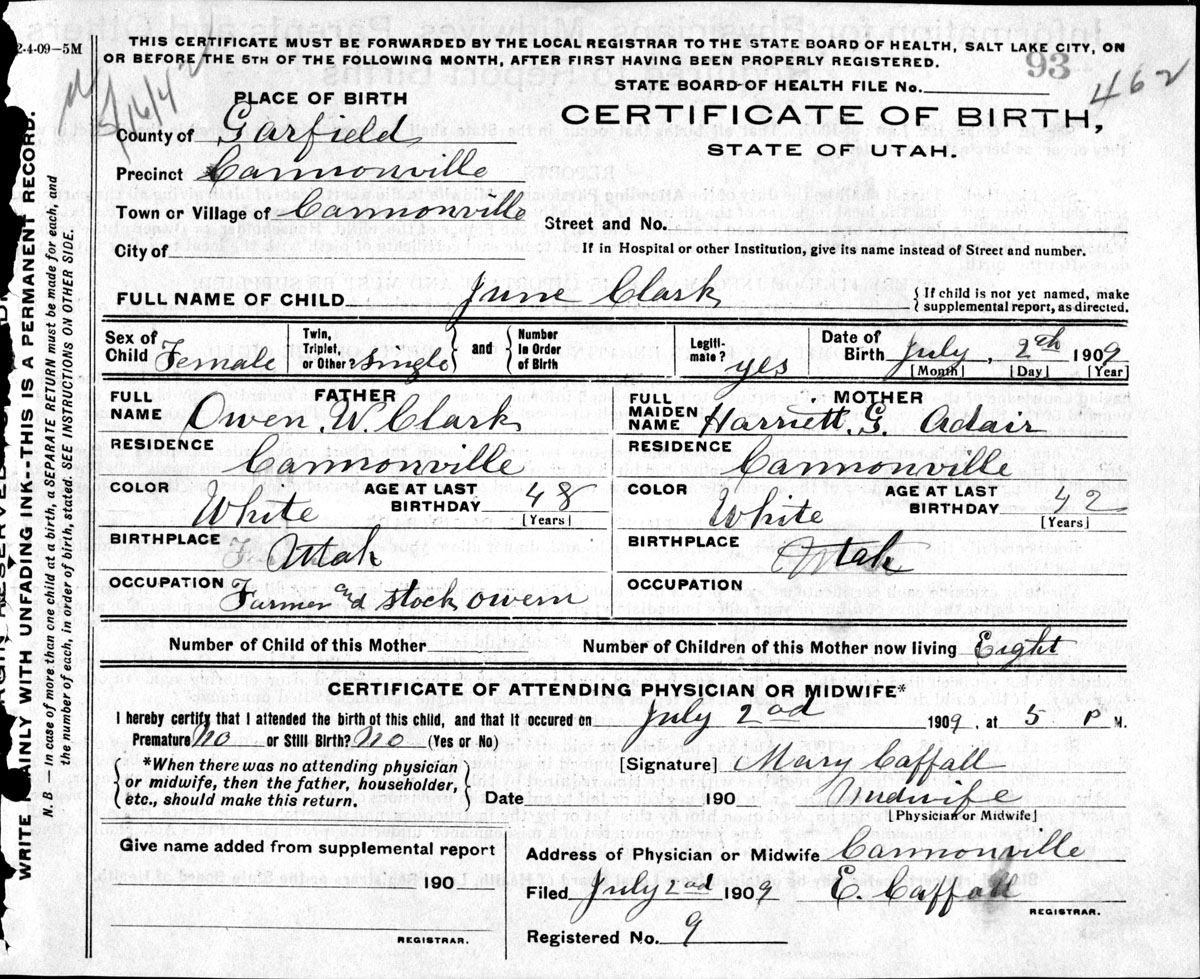 2-4-09—5M
THIS CERTIFICATE MUST BE FORWARDED BY THE LOCAL REGISTRAR TO THE STATE BOARD OF HEALTH, SALT LAKE CITY, ON
OR BEFORE THE 5TH OF THE FOLLOWING MONTH, AFTER FIRST HAVING BEEN PROPERLY REGISTERED.
93
STATE BOARD OF HEALTH FILE No. 462
PLACE OF BIRTH
CERTIFICATE OF BIRTH,
STATE OF UTAH.
County of Garfield
Precinct Cannonville
Town or Village of Cannonville
Street and No.
City of
If in Hospital or other Institution, give its name instead of Street and number.
FULL NAME OF CHILD June Clark
{If child is not yet named, make supplemental report, as directed.
Sex of Child Female
Twin, Triplet, or Other single } and { Number in Order of Birth
Legitimate? yes
Date of Birth July 2th 1909
[Month] [Day] [Year]
FATHER
FULL NAME Owen. W. Clark
RESIDENCE Cannonville
COLOR White AGE AT LAST BIRTHDAY 48 [Years]
BIRTHPLACE Uttah
OCCUPATION Farmer and stock owern
MOTHER
FULL MAIDEN NAME Harriett. G. Adair
RESIDENCE Cannonville
COLOR White AGE AT LAST BIRTHDAY 42 [Years]
BIRTHPLACE Utah
OCCUPATION
Number of Child of this Mother
Number of Children of this Mother now living Eight
CERTIFICATE OF ATTENDING PHYSICIAN OR MIDWIFE*
I hereby certify that I attended the birth of this child, and that it occured on July 2nd 1909, at 5 P M.
Premature? No or Still Birth? No (Yes or No)
{*When there was no attending physician
or midwife, then the father, householder,
etc., should make this return.}
[Signature] Mary Caffall
Date 190
Midwife
[Physician or Midwife]
Give name added from supplemental report
190
REGISTRAR.
Address of Physician or Midwife Cannonville
Filed July 2nd 1909 E. Caffall
REGISTRAR.
Registered No. 9
WRITE PLAINLY WITH UNFADING INK—THIS IS A PERMANENT RECORD.
N. B — In case of more than one child at a birth, a SEPARATE RETURN must be made for each, and
the number of each, in order of birth, stated. SEE INSTRUCTIONS ON OTHER SIDE.